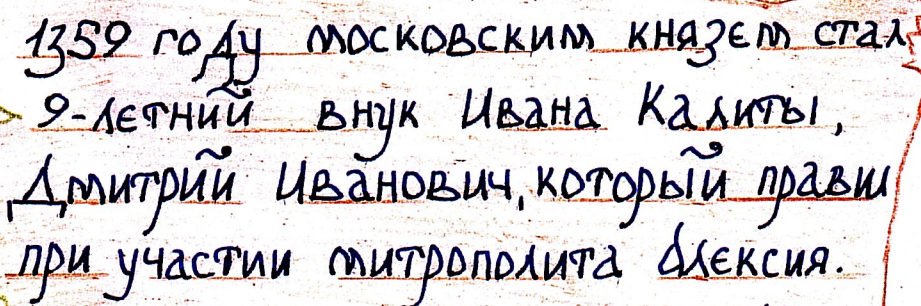 1359 году московским князем стал
9-летний внук Ивана Калиты,
Дмитрий Иванович, который правил
при участии митрополита Алексия.